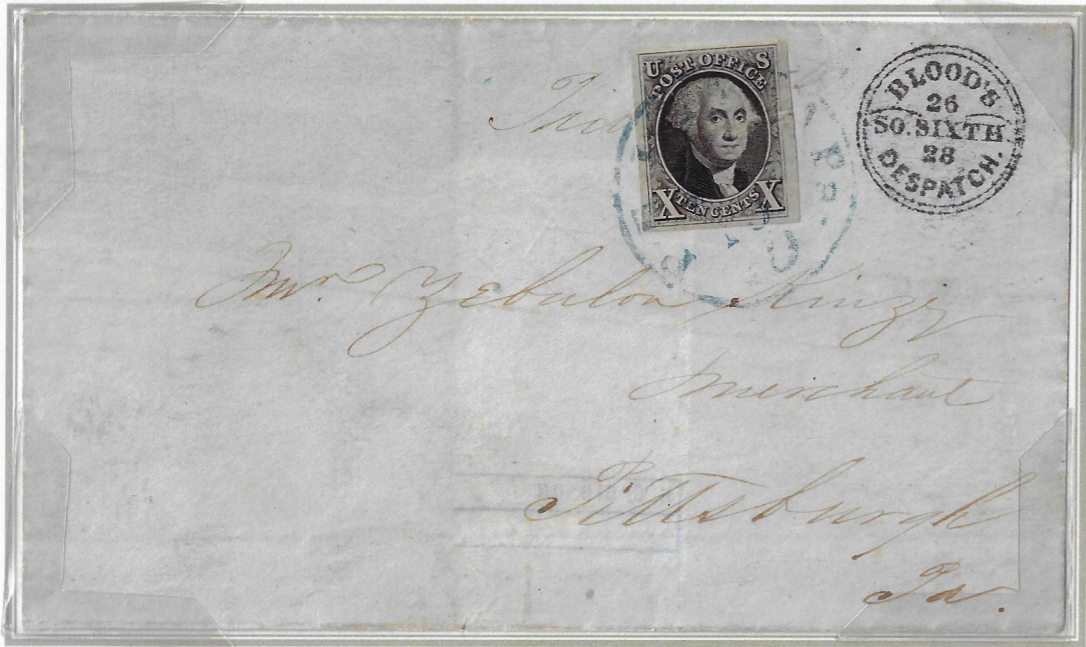 U S
POST OFFICE
X TEN CENTS X
BLOOD'S
26
SO. SIXTH
28
DESPATCH.
Paid
Mr. Zebulon Kinzy
Merchant
Pittsburgh
Pa.